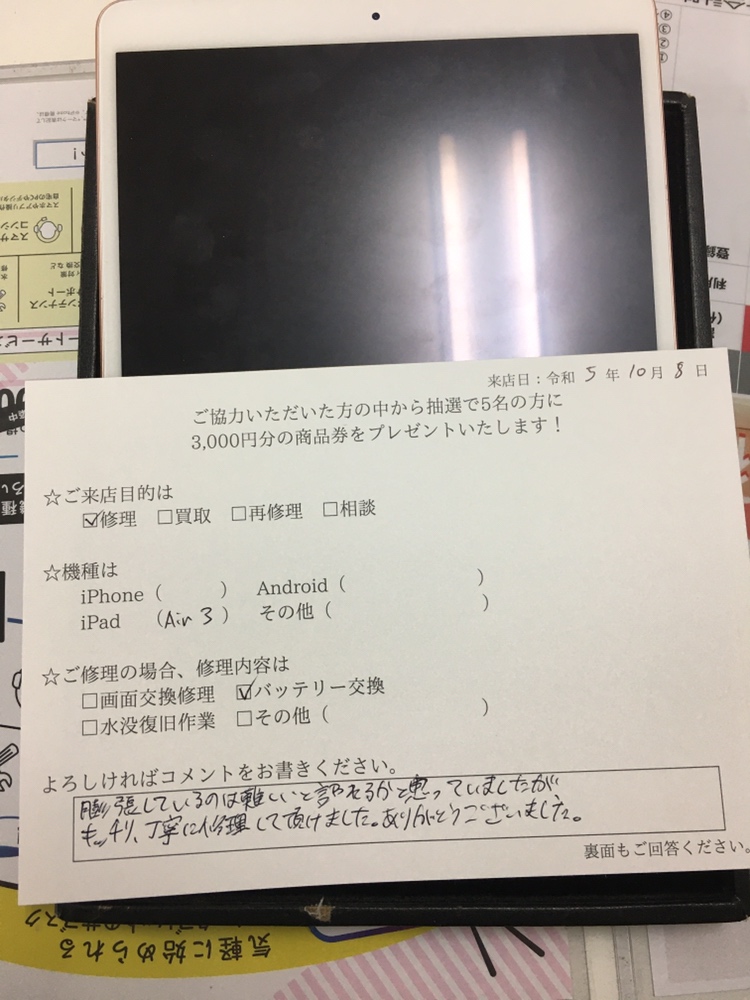 来店日：令和 5 年 10 月 8 日
ご協力いただいた方の中から抽選で5名の方に
3,000円分の商品券をプレゼントいたします！
☆ご来店目的は
☑修理 □買取 □再修理 □相談
☆機種は
iPhone（ ） Android（ ）
iPad （Air 3） その他（ ）
☆ご修理の場合、修理内容は
□画面交換修理 ☑バッテリー交換
□水没復旧作業 □その他（ ）
よろしければコメントをお書きください。
膨張しているのは難しいと言われるかと思っていましたが、
キッチリ、丁寧に修理して頂けました。ありがとうございました。
裏面もご回答ください。
気軽に始められる
メンテナンス
サポート
スマサポ
コンシ
登録
利用